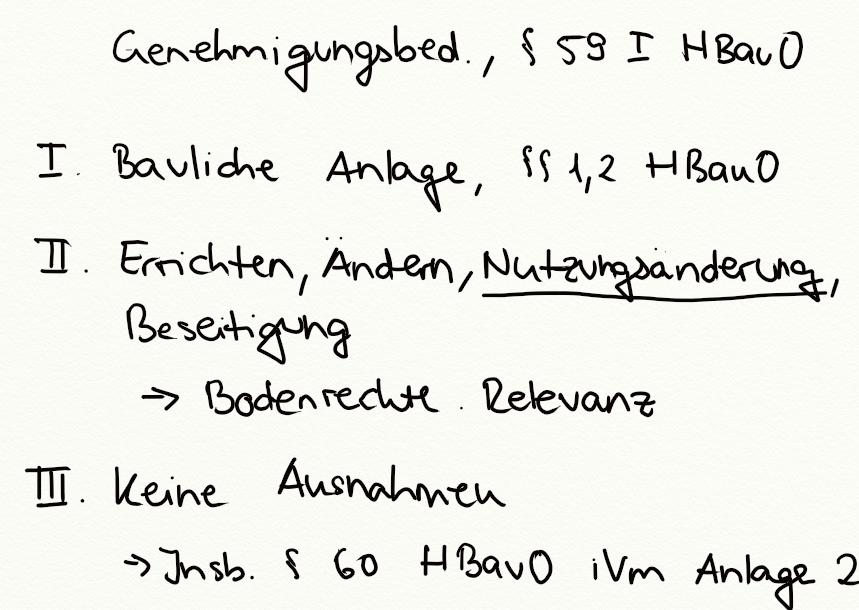 Genehmigungsbed., § 59 I HBauO
I. Bauliche Anlage, §§ 1,2 HBauO
II. Errichten, Ändern, Nutzungsänderung,
Beseitigung
→ Bodenrechtl. Relevanz
III. Keine Ausnahmen
→ Insb. § 60 HBauO iVm Anlage 2